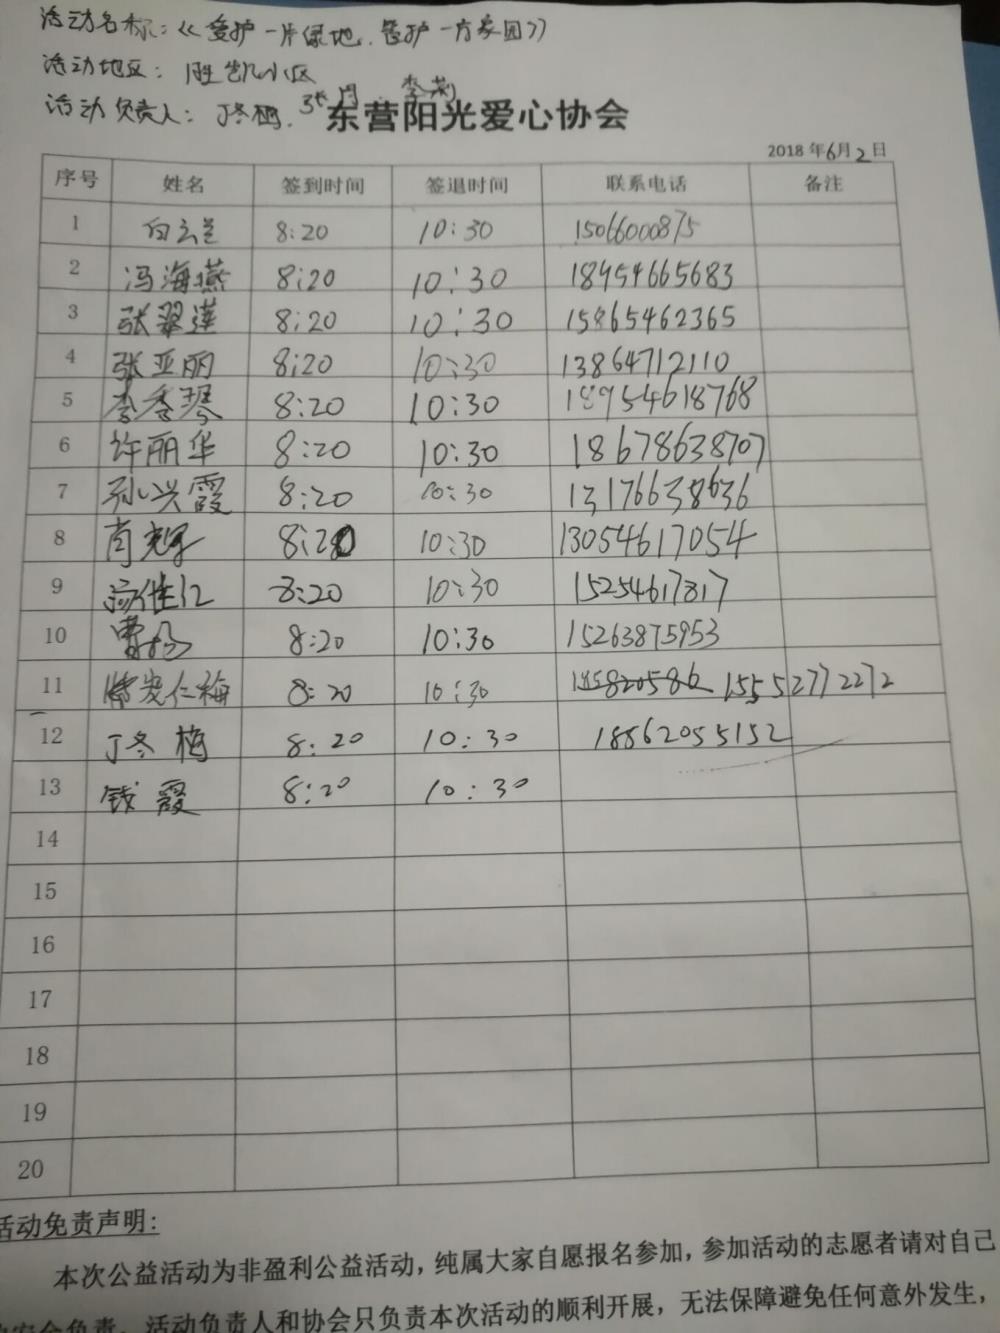 活动名称:《爱护一片绿地、管护一方家园》
活动地区: 胜凯小区
活动负责人: 丁冬梅、张丹、李莉
东营阳光爱心协会
2018年6月2日
序号 姓名 签到时间 签退时间 联系电话 备注
1 白云兰 8:20 10:30 15066000875
2 冯海燕 8:20 10:30 18954665683
3 张翠莲 8:20 10:30 15865462365
4 张亚丽 8:20 10:30 13864712110
5 李秀琴 8:20 10:30 18954618768
6 许丽华 8:20 10:30 18678638707
7 孙兴霞 8:20 10:30 13176638636
8 肖 8:20 10:30 13054617054
9 8:20 10:30 15254617817
10 曹 8:20 10:30 15263875953
11 党仁梅 8:20 10:30 15552772272
12 丁冬梅 8:20 10:30 18862055152
13 钱霞 8:20 10:30
14
15
16
17
18
19
20
活动免责声明:
本次公益活动为非盈利公益活动,纯属大家自愿报名参加,参加活动的志愿者请对自己
安全负责。活动负责人和协会只负责本次活动的顺利开展,无法保障避免任何意外发生,